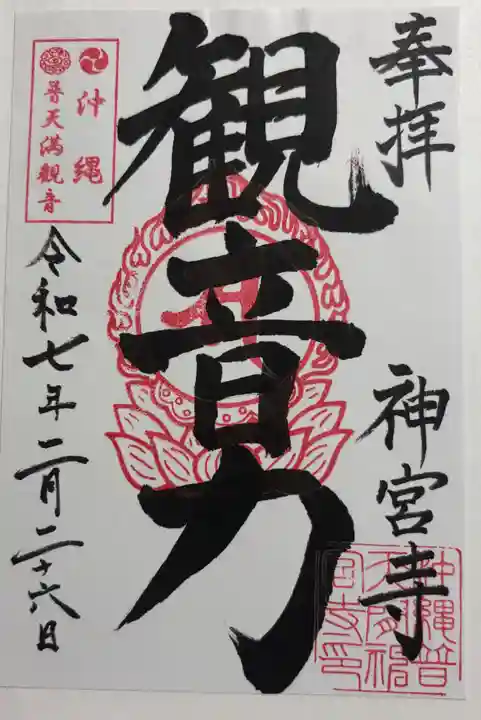 奉拝
神宮寺
観音力
沖縄
普天満観音
令和七年二月二十六日